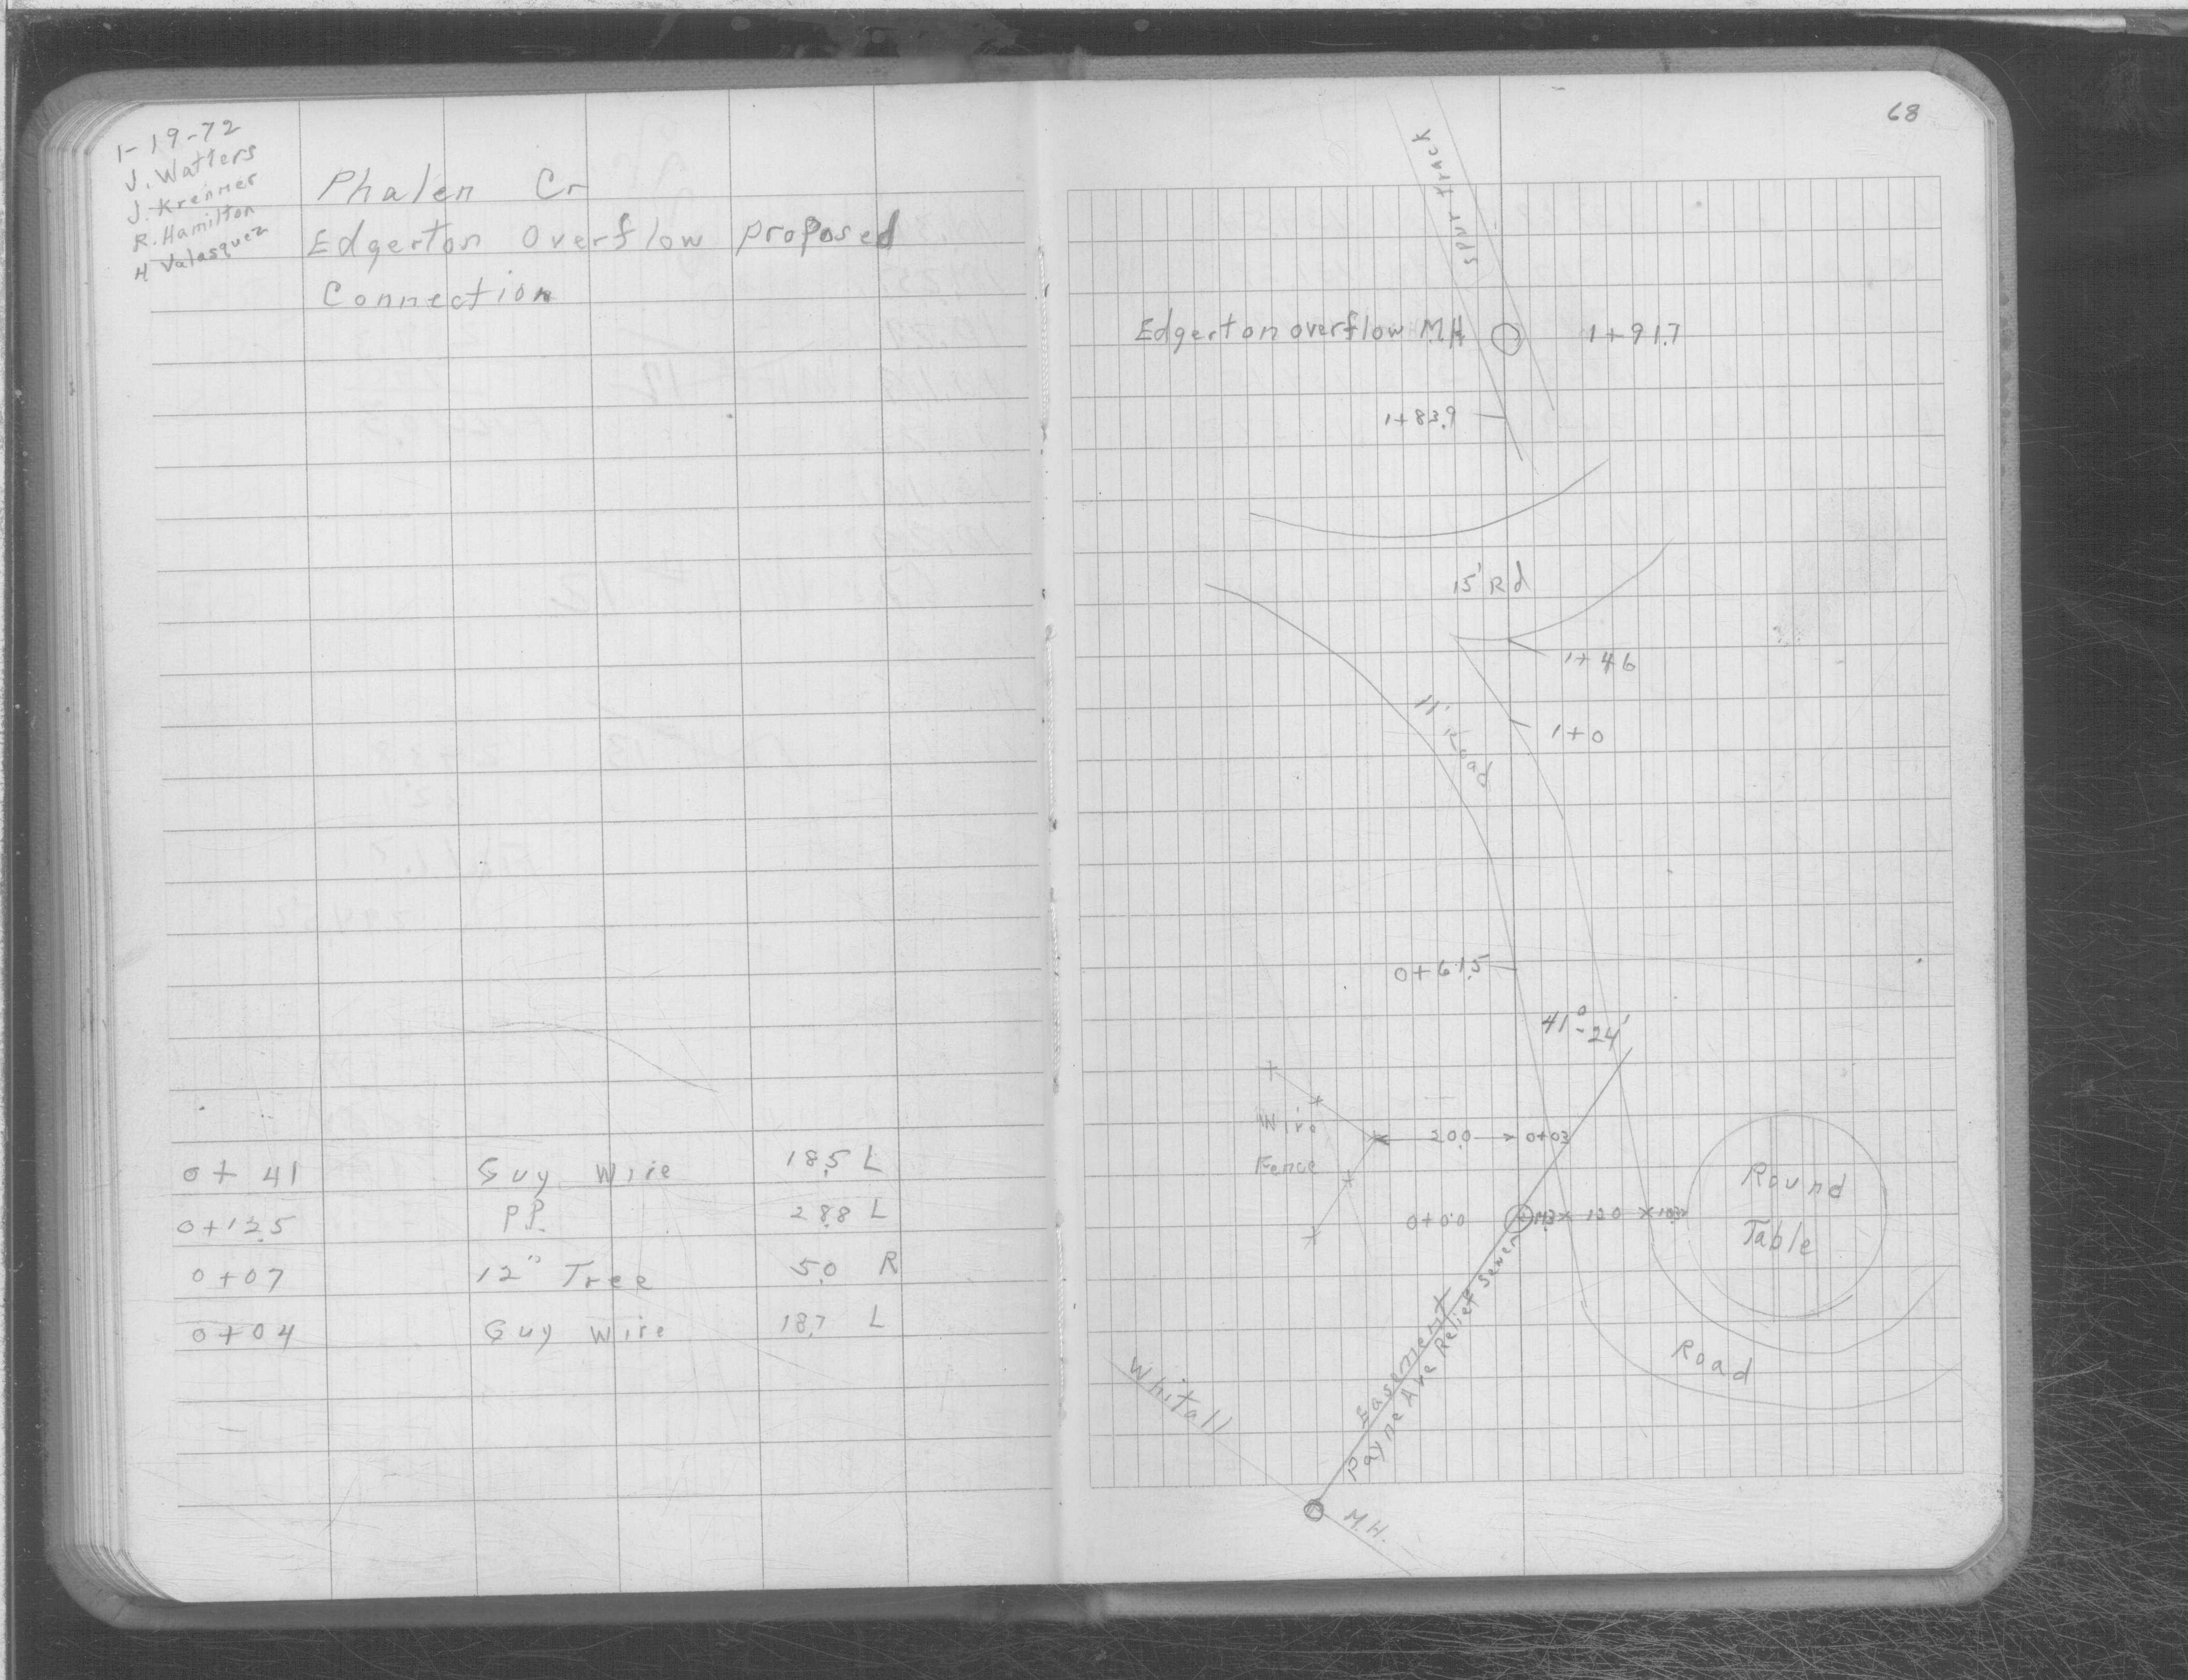 1-19-72
J. Watters
J. Kremer
R. Hamilton
H Valasquez
Phalen Cr
Edgerton Overflow proposed
Connection
0+41 Guy Wire 18.5 L
0+13.5 P.P. 28.8 L
0+07 12" Tree 5.0 R
0+04 Guy Wire 18.7 L
68
Spur track
Edgerton overflow M.H. 1+91.7
1+83.9
15' Rd
1+46
11' Road
1+0
0+61.5
41°-24'
Wire
Fence
20.0 0+03
0+00 12.0
Round
Table
Road
Easement
Payne Ave Relief Sewer
Whitall
M.H.